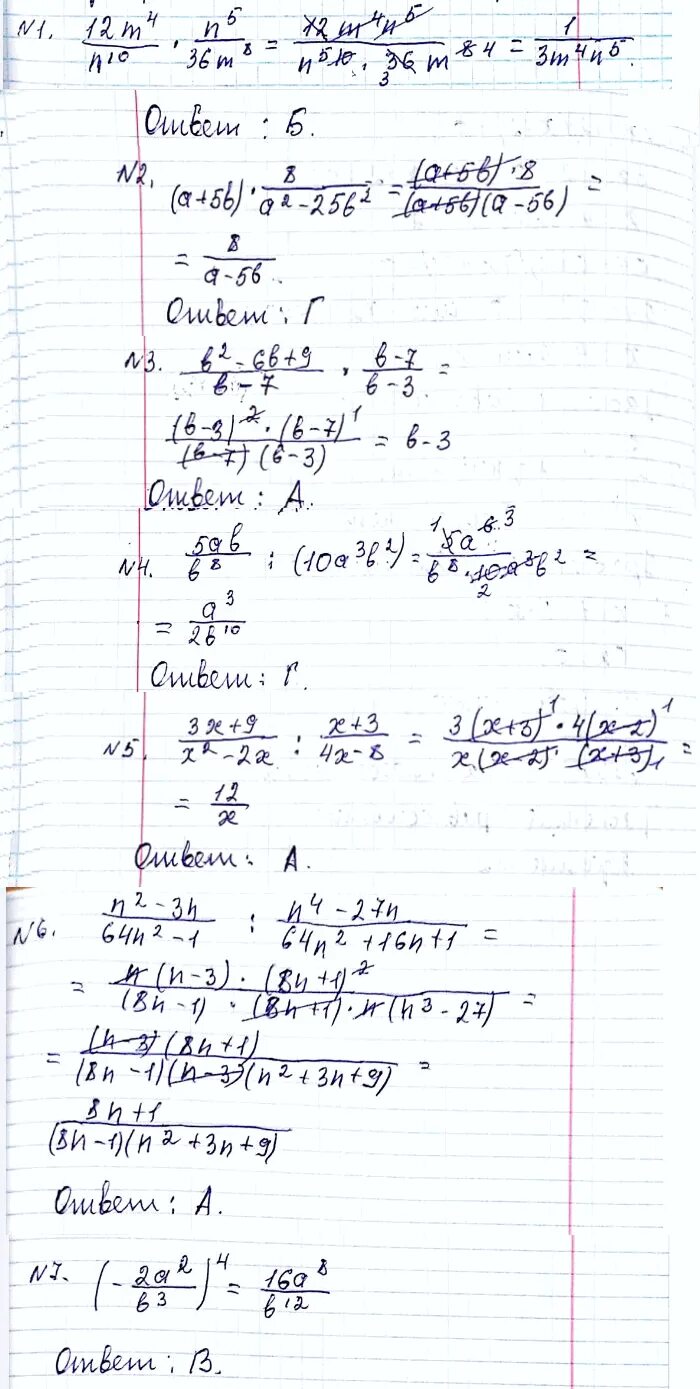 N1. 12m⁴/n¹⁰ · n⁵/36m⁸ = 12m⁴n⁵/(n⁵ 10 · 3 36 m 8 4) = 1/(3m⁴n⁵).
Ответ : Б.
N2. (a+5b) · 8/(a²-25b²) = (a+5b)·8/((a+5b)(a-5b)) =
= 8/(a-5b).
Ответ : Г
N3. (b²-6b+9)/(b-7) · (b-7)/(b-3) =
(b-3)²·(b-7)¹/((b-7)(b-3)) = b-3
Ответ : А.
N4. 5ab/b⁸ : (10a³b²) = 1 5a 6 3/(b⁸·10 2 a³b²) =
= a³/2b¹⁰
Ответ : Г.
N5. (3x+9)/(x²-2x) : (x+3)/(4x-8) = 3(x+3)¹·4(x-2)¹/(x(x-2)(x+3)₁) =
= 12/x
Ответ : А.
N6. (n²-3n)/(64n²-1) : (n⁴-27n)/(64n²+16n+1) =
= n(n-3)·(8n+1)²/((8n-1)·(8n+1)·n(n³-27)) =
= (n-3)(8n+1)/((8n-1)(n-3)(n²+3n+9)) =
(8n+1)/((8n-1)(n²+3n+9))
Ответ : А.
N7. (-2a²/b³)⁴ = 16a⁸/b¹²
Ответ : В.